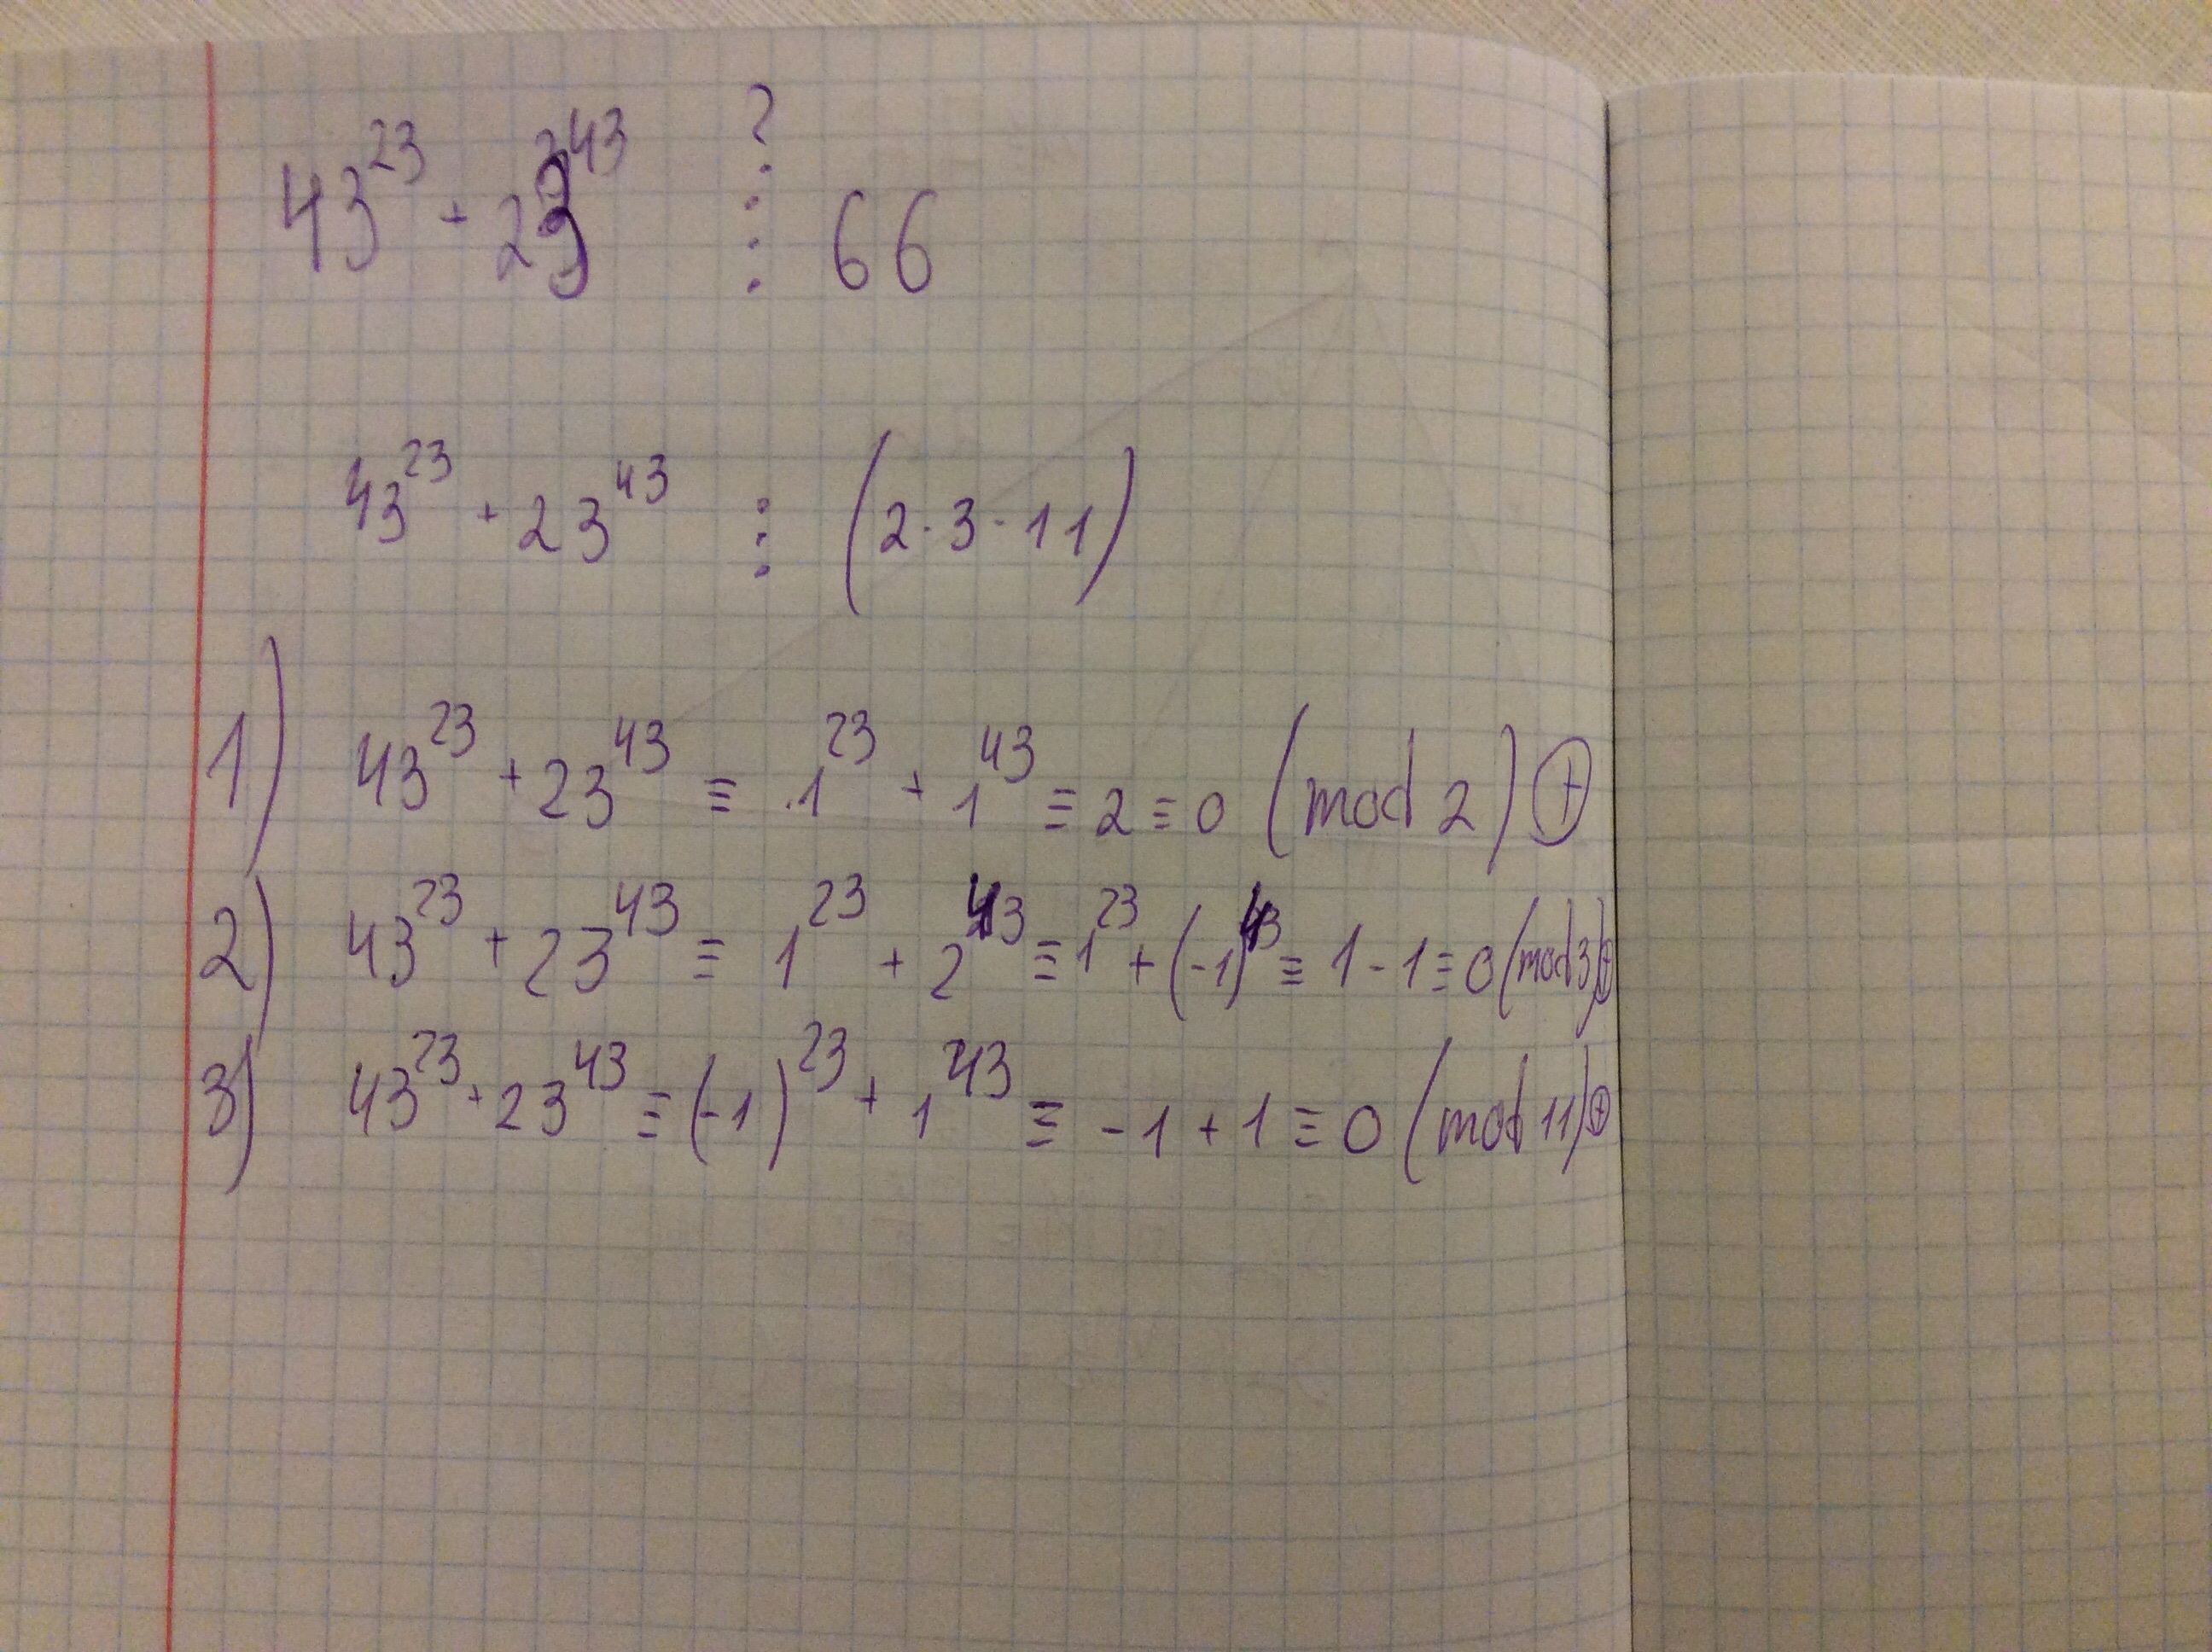 43^23 + 23^43 ⋮? 66
43^23 + 23^43 ⋮ (2·3·11)
1) 43^23 + 23^43 ≡ 1^23 + 1^43 ≡ 2 ≡ 0 (mod 2) ⊕
2) 43^23 + 23^43 ≡ 1^23 + 2^43 ≡ 1^23 + (-1)^43 ≡ 1 - 1 ≡ 0 (mod 3) ⊕
3) 43^23 + 23^43 ≡ (-1)^23 + 1^43 ≡ -1 + 1 ≡ 0 (mod 11) ⊕